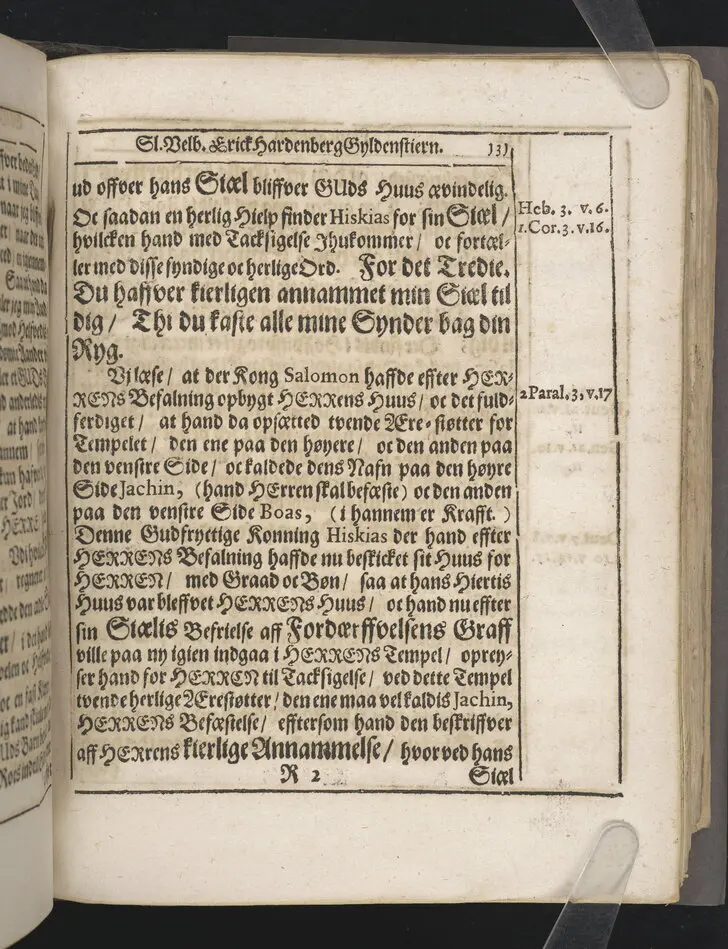 Sl. Velb. Erick Hardenberg Gyldenstiern. 131
ud offver hans Siæl bliffver GUds Huus ævindelig.
Oc saadan en herlig Hielp finder Hiskias for sin Siæl /
hvilcken hand med Tacksigelse Ihukommer / oc fortæl-
ler med disse syndige oc herlige Ord. For det Tredie.
Du haffver kierligen annammet min Siæl til
dig / Thi du kaste alle mine Synder bag din
Ryg.
Heb. 3. v. 6.
1. Cor. 3. v. 16.
Vi læse / at der Kong Salomon haffde effter HER-
RENs Befalning opbygt HERRens Huus / oc det fuld-
ferdiget / at hand da opsætted tvende Ære-støtter for
Tempelet / den ene paa den høyere / oc den anden paa
den venstre Side / oc kaldede dens Nafn paa den høyre
Side Jachin, (hand HErren skal befæste) oc den anden
paa den venstre Side Boas, (i hannem er Krafft.)
2 Paral. 3, v. 17
Denne Gudfryctige Konning Hiskias der hand effter
HERRENs Befalning haffde nu beskicket sit Huus for
HERREN / med Graad oc Bøn / saa at hans Hiertis
Huus var bleffvet HERRENs Huus / oc hand nu effter
sin Siælis Befrielse aff Fordærffvelsens Graff
ville paa ny igien indgaa i HERRENs Tempel / oprey-
ser hand for HERREN til Tacksigelse / ved dette Tempel
tvende herlige Ærestøtter / den ene maa vel kaldis Jachin,
HERRENs Befæstelse / efftersom hand den beskriffver
aff HERrens kierlige Annammelse / hvor ved hans
R 2 Siæl